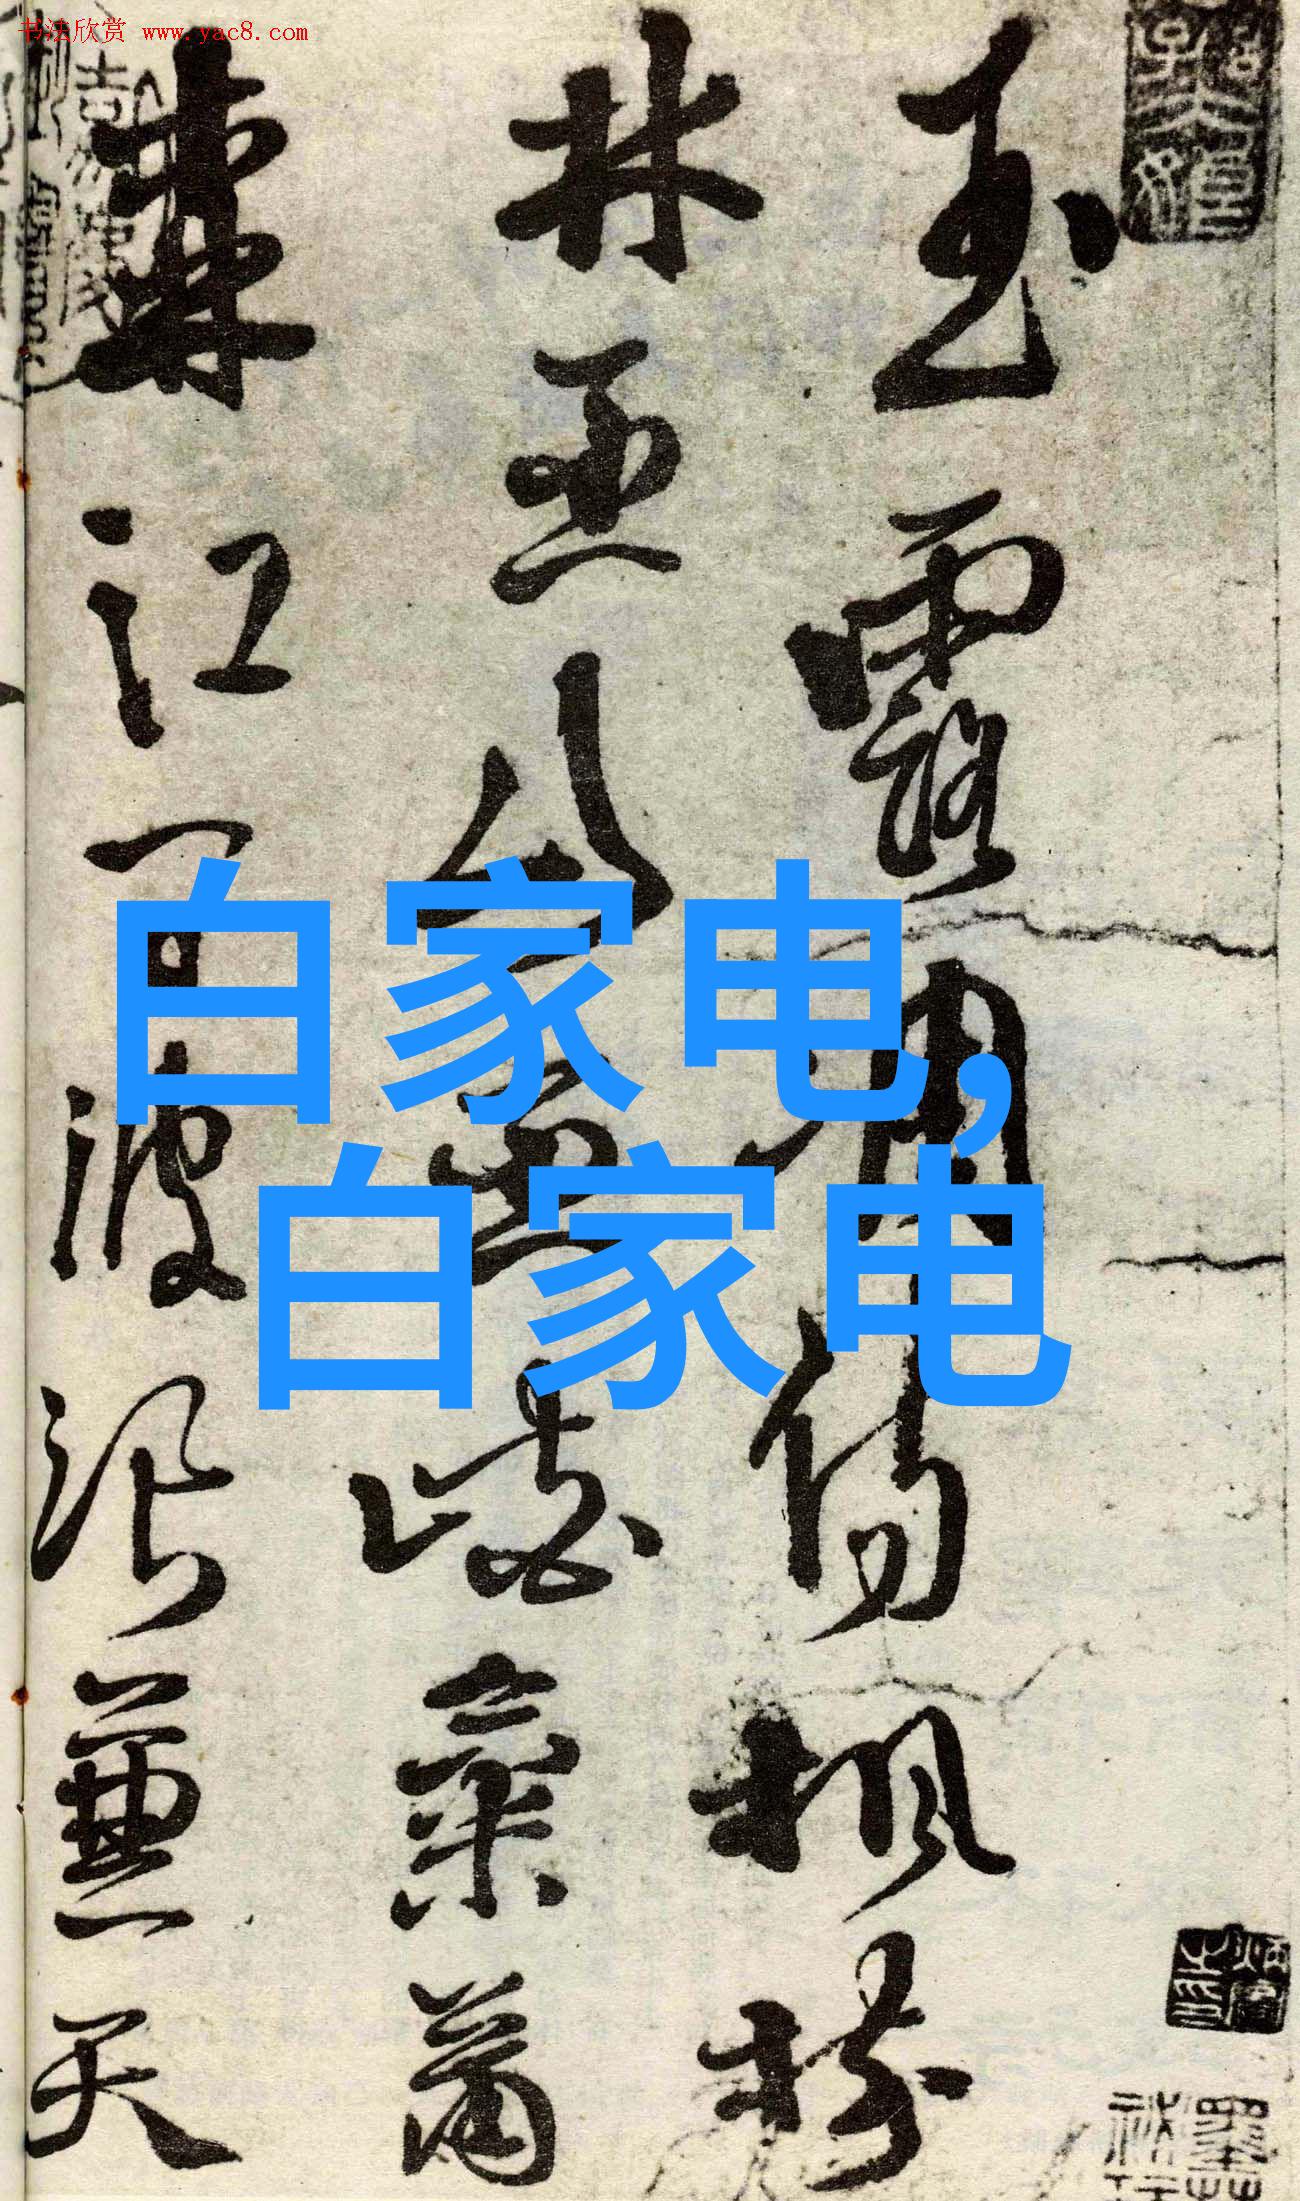 书法欣赏 www.yac8.com
玉露凋傷楓樹
林巫山巫峽氣蕭
森江間波浪兼天
白家电,
白家电